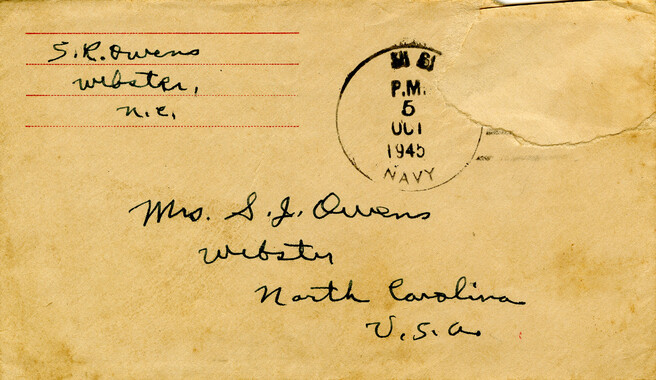 S. R. Owens
Webster,
N.C.
P.M.
5
OCT
1945
NAVY
Mrs. S. J. Owens
Webster
North Carolina
U.S.A.